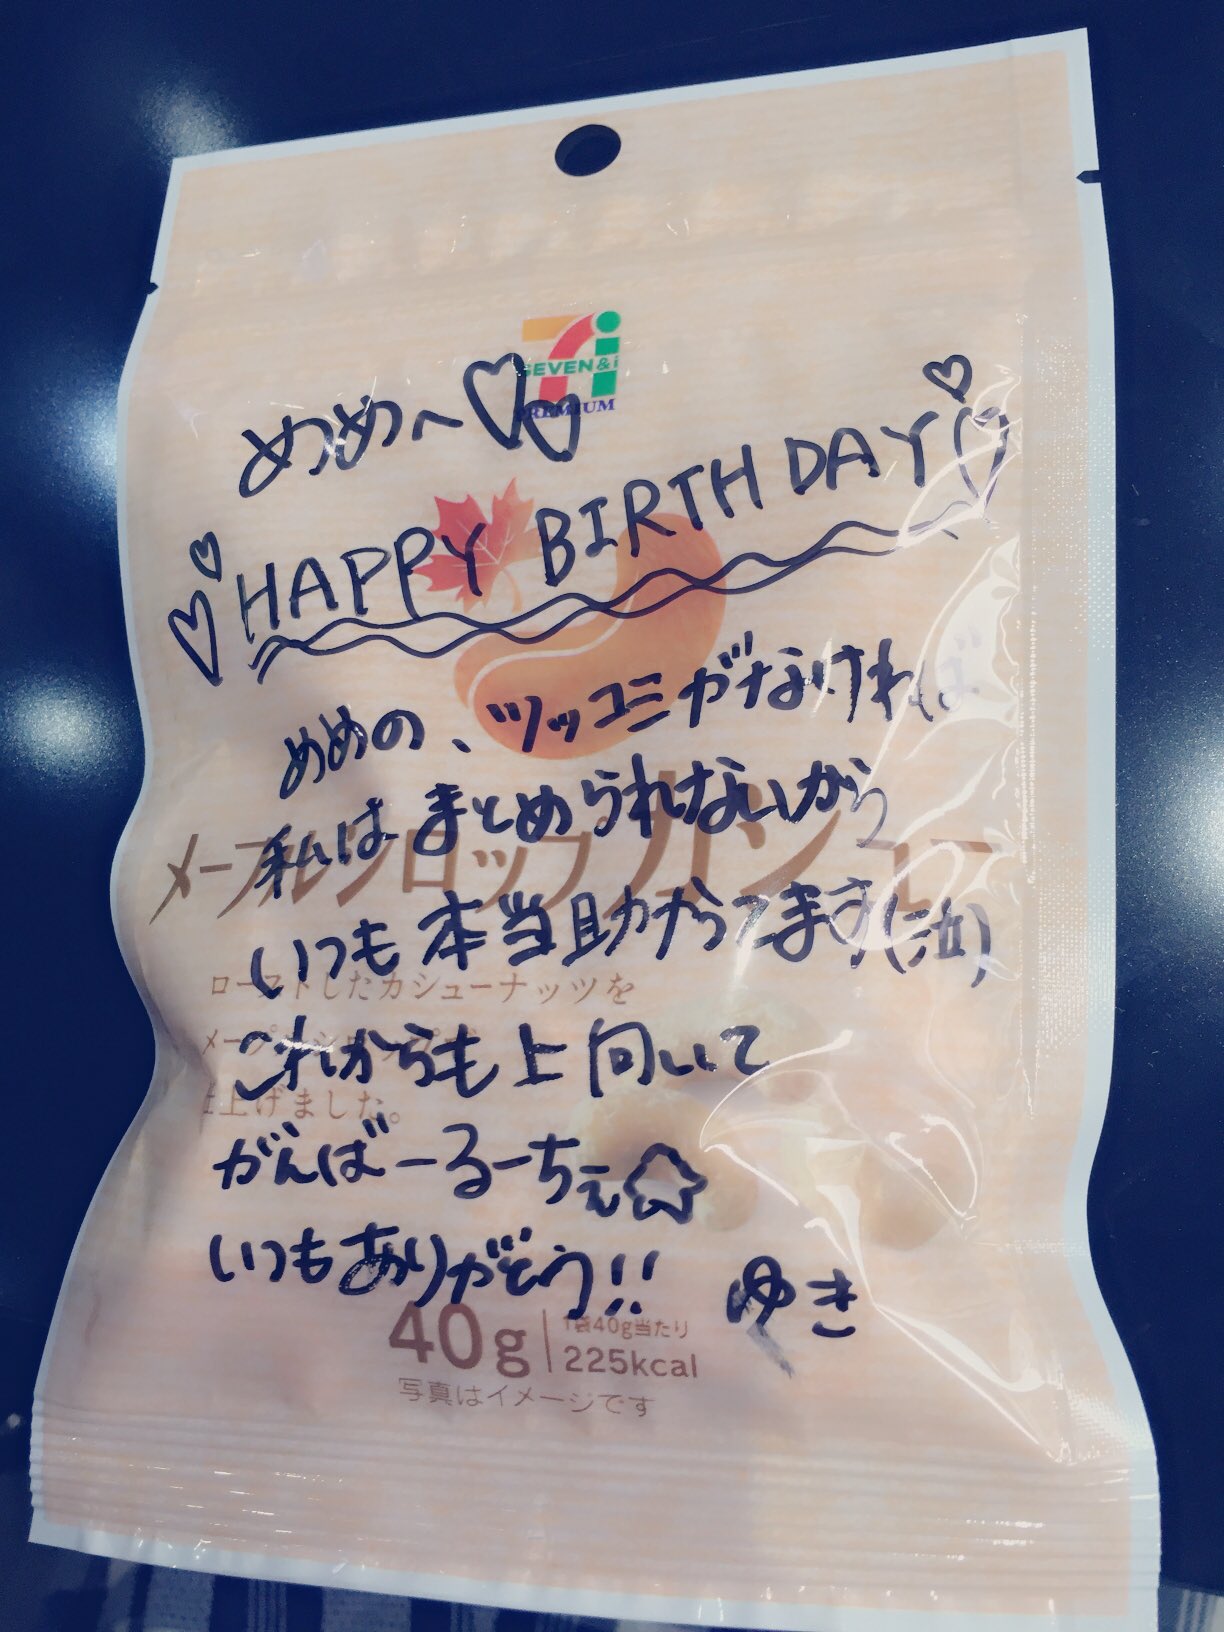 SEVEN&i
PREMIUM
めめへ♡♡
HAPPY BIRTHDAY♡
めめの、ツッコミがなければ
私はまとめられないから
メープルシロップカシュー
いつも本当助かってます(泣)
ローストしたカシューナッツを
メープルシロップで
仕上げました。
これからも上向いて
がんばーるーちぇ☆
いつもありがとう!!
ゆき
40g
1袋40g当たり
225kcal
写真はイメージです